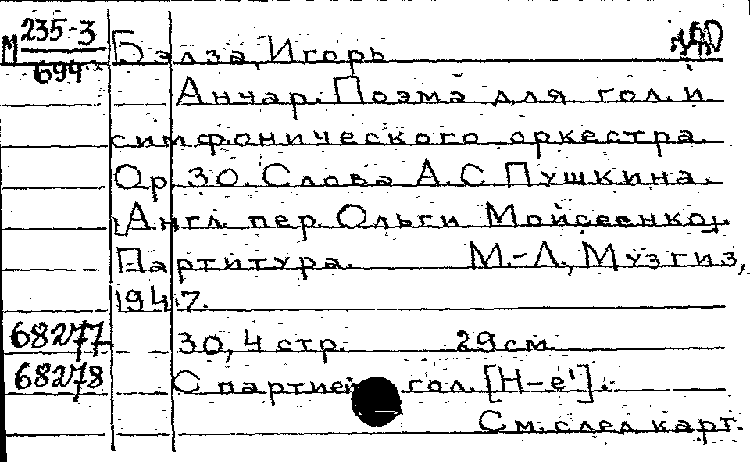 М 235-3
694
Бэлза, Игорь
Анчар. Поэма для гол. и
симфонического оркестра.
Ор. 30. Слова А. С. Пушкина.
[Англ. пер. Ольги Мойсеенко].
Партитура. М.-Л., Музгиз,
1947.
68277 30, 4 стр. 29 см.
68278 С партией гол. [H-e'].
См. след. карт.